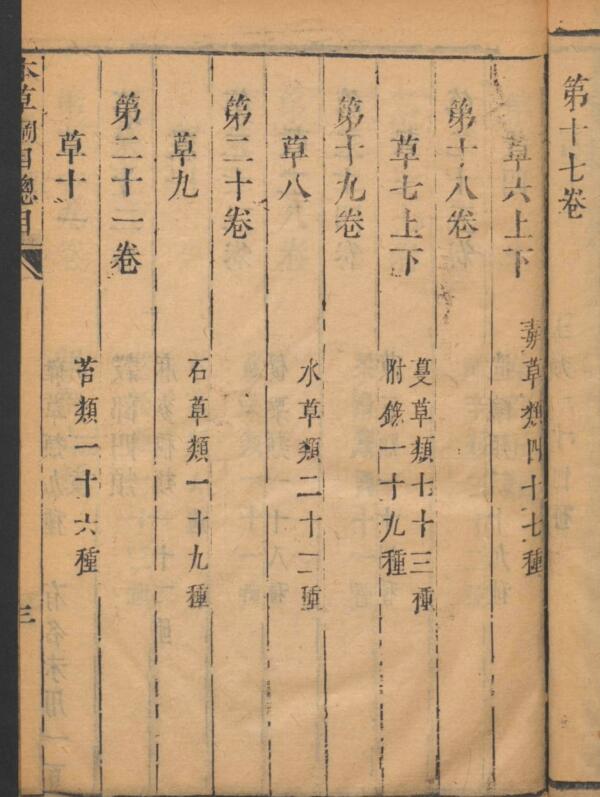 第十七卷
草六上下 毒草類四十七種
第十八卷
草七上下 蔓草類七十三種
附錄一十九種
第十九卷
草八 水草類二十二種
第二十卷
草九 石草類一十九種
第二十一卷
草十 苔類一十六種
本草綱目總目 三